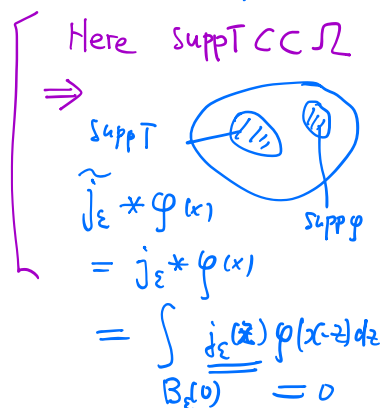 Here suppT ⊂⊂ Ω
⇒
suppT
suppφ
j̃_ε * φ(x)
= j_ε * φ(x)
= ∫_{B_ε(0)} j_ε(z) φ(x-z) dz
= 0